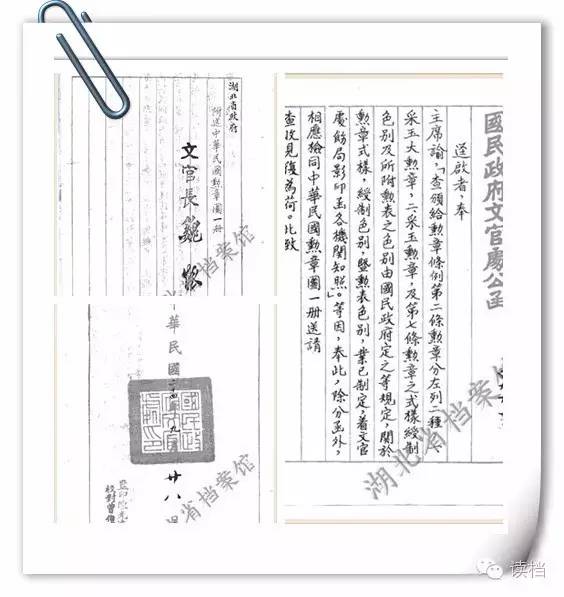 國民政府文官處公函
逕啟者奉
主席諭，「查頒給勲章條例第二條勲章分左列二種，一、
采玉大勲章，二采玉勲章，及第七條勲章之式樣綬制
色别及所附勲表之色别由國民政府定之等規定，關於
勲章式樣，綬制色别，暨勲表色别，業已制定，着文官
處飭局影印函各機關知照」。等因，奉此，除分函外，
相應檢同中華民國勲章圖一册送請
查收見復為荷。此致
湖北省政府
附送中華民國勲章圖一册
文官長魏
華民國二十四年九
廿八
監印
校對曾
湖北省档案馆
省档案馆
省档案馆
读档